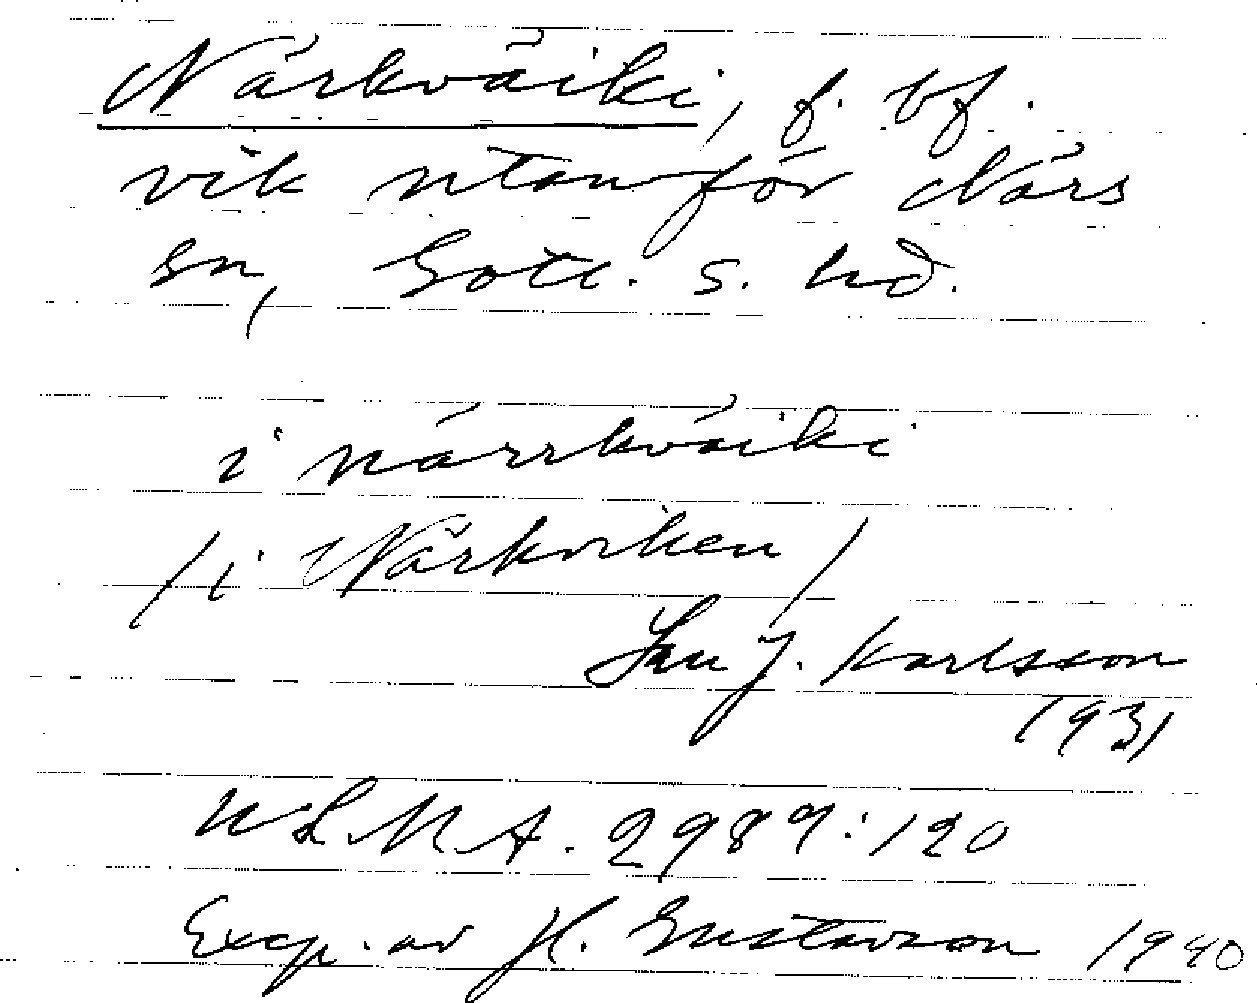 Närkväiki, f. bf.
vik utanför Närs
sn, Gotl. s. hd.
i närrkväiki
/i Närkviken/
Jan J. Karlsson
1931
ULMA. 2989:120
Excp. av H. Gustavson 1940